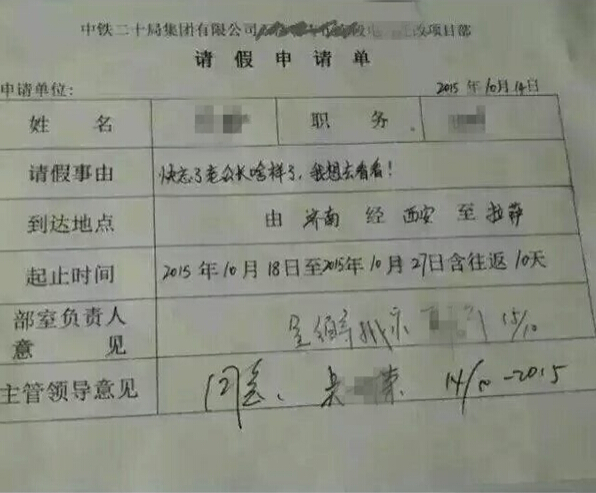 中铁二十局集团有限公司 改项目部
请假申请单
申请单位: 2015年10月14日
姓 名 职 务
请假事由 快忘了老公长啥样了，我想去看看!
到达地点 由 济南 经 西安 至 拉萨
起止时间 2015年10月18日至2015年10月27日含往返10天
部室负责人
意 见 15/10
主管领导意见 同意、 14/10-2015